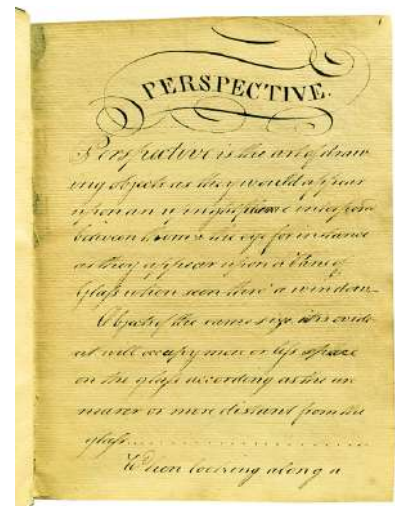 1
PERSPECTIVE.
Perspective is the art of draw
ing objects as they would appear
upon an upright plane interposd
between them & the eye for instance
as they appear upon a Pane of
Glaſs when seen thro' a window_
Objects of the same size, it is evid
ent will occupy more or leſs space
on the glaſs according as the are
nearer or more distant from the
glaſs....................
When looking along a